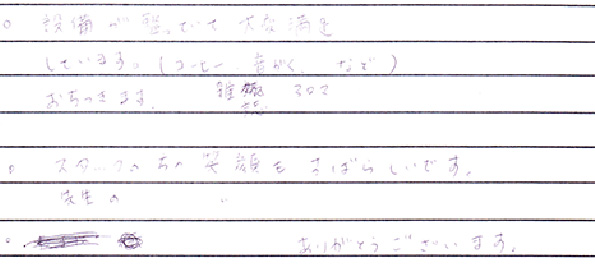 ○ 設備が整っていて大変満足
しています。(コーヒー、音がく、など)
おちつきます。 雑
○ スタッフの方の笑顔もすばらしいです。
先生の 〃
○ ありがとうございます。